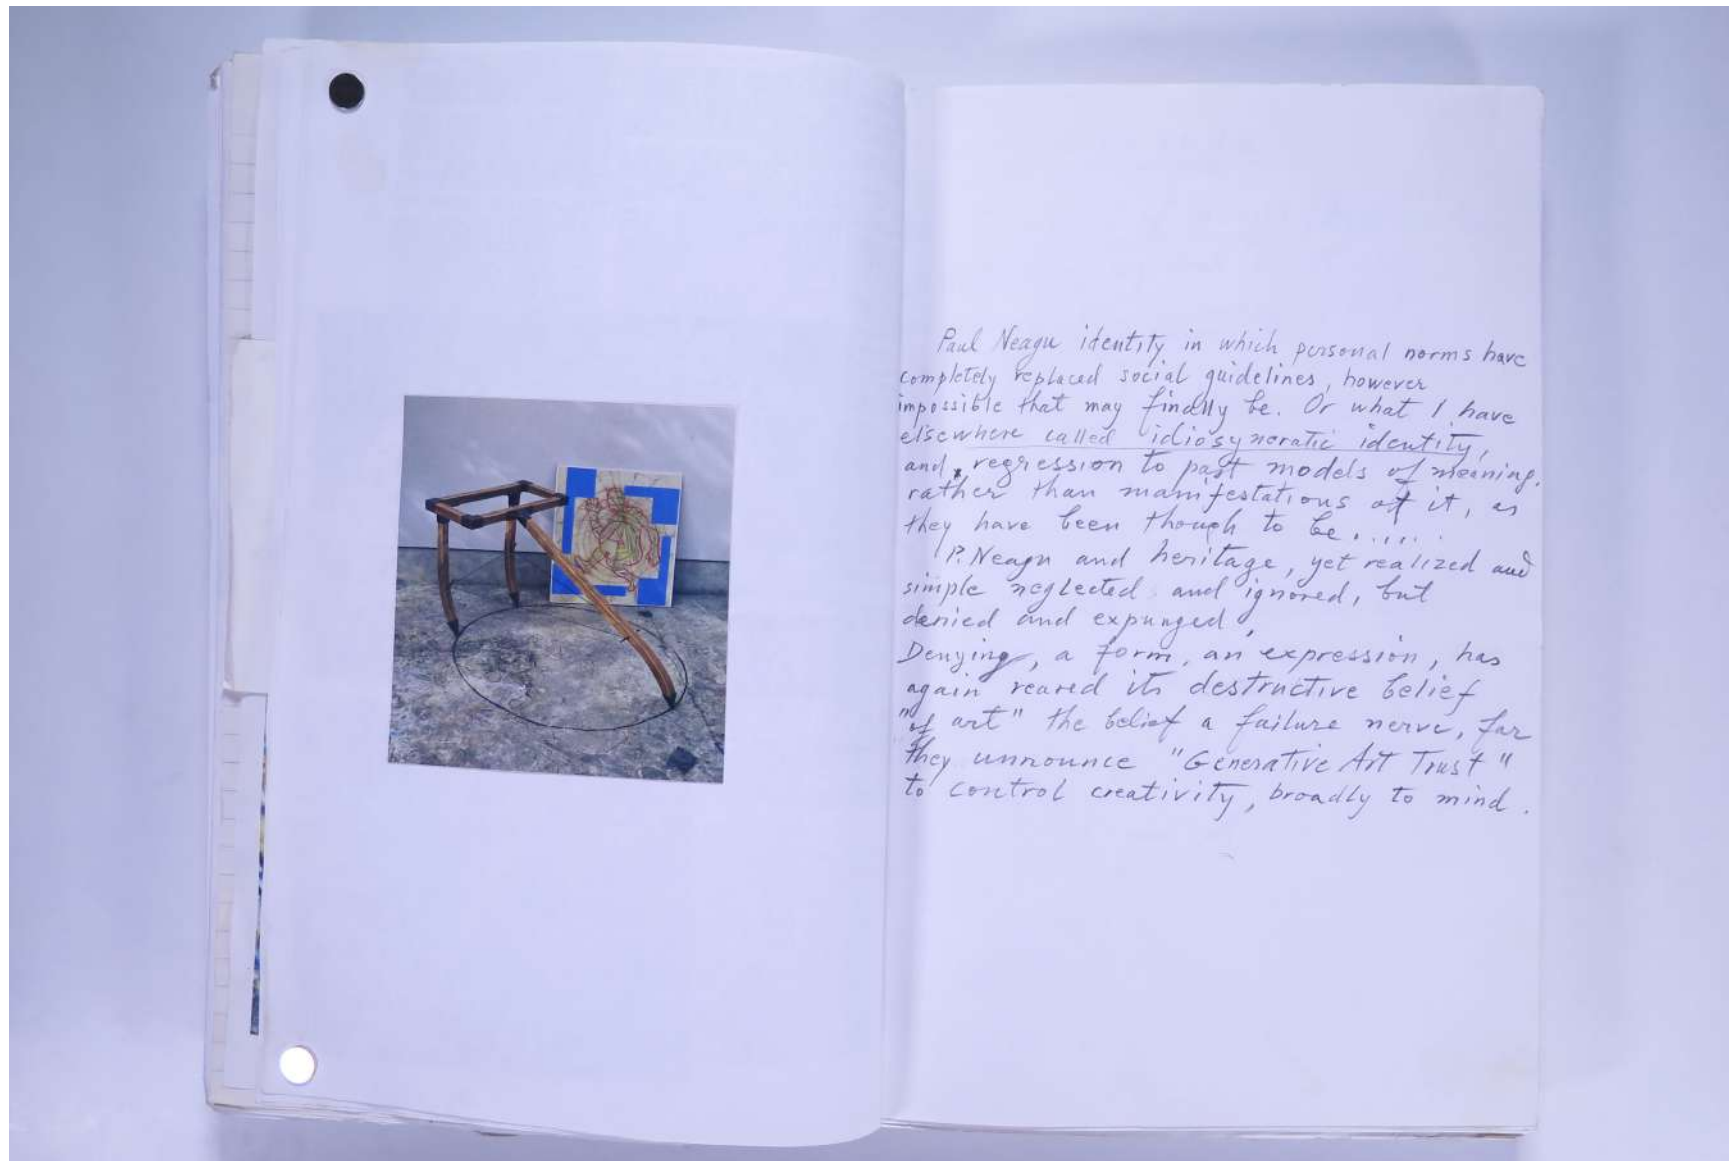 Paul Neagu identity in which personal norms have
completely replaced social guidelines, however
impossible that may finally be. Or what I have
elsewhere called idiosyncratic identity,
and, regression to past models of meaning.
rather than manifestations of it, as
they have been though to be......
P. Neagu and heritage, yet realized and
simple neglected and ignored, but
denied and expunged,
Denying, a form, an expression, has
again reared its destructive belief
"of art" the belief a failure nerve, far
they unnounce "Generative Art Trust"
to control creativity, broadly to mind.